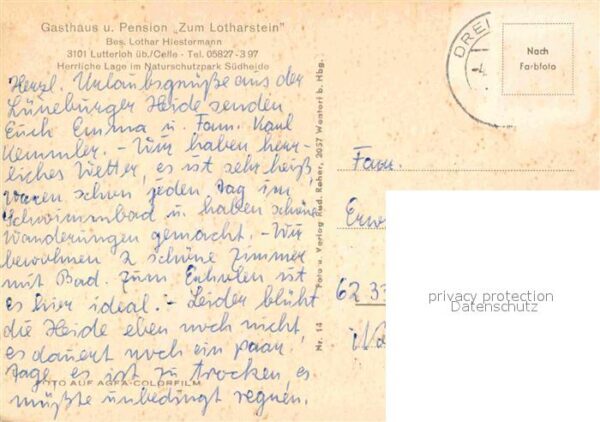 Gasthaus u. Pension „Zum Lotharstein"
Bes. Lothar Hiestermann
3101 Lutterloh üb./Celle - Tel. 05827-397
Herrliche Lage im Naturschutzpark Südheide
Herzl. Urlaubsgrüße aus der
Lüneburger Heide senden
Euch Emma u. Fam. Karl
Kemmler. - Wir haben herr-
liches Wetter, es ist sehr heiß
waren schon jeden Tag im
Schwimmbad u. haben schöne
Wanderungen gemacht. - Wir
bewohnen 2 schöne Zimmer
mit Bad. Zum Erholen ist
es hier ideal. - Leider blüht
die Heide eben noch nicht,
es dauert noch ein paar
Tage, es ist zu trocken, es
müßte unbedingt regnen.
FOTO AUF AGFA-COLORFILM
Nr. 14 Foto u. Verlag Rud. Reher, 2057 Wentorf b. Hbg.
DREI
Nach
Farbfoto
Fam.
Erw
62 33
privacy protection
Datenschutz